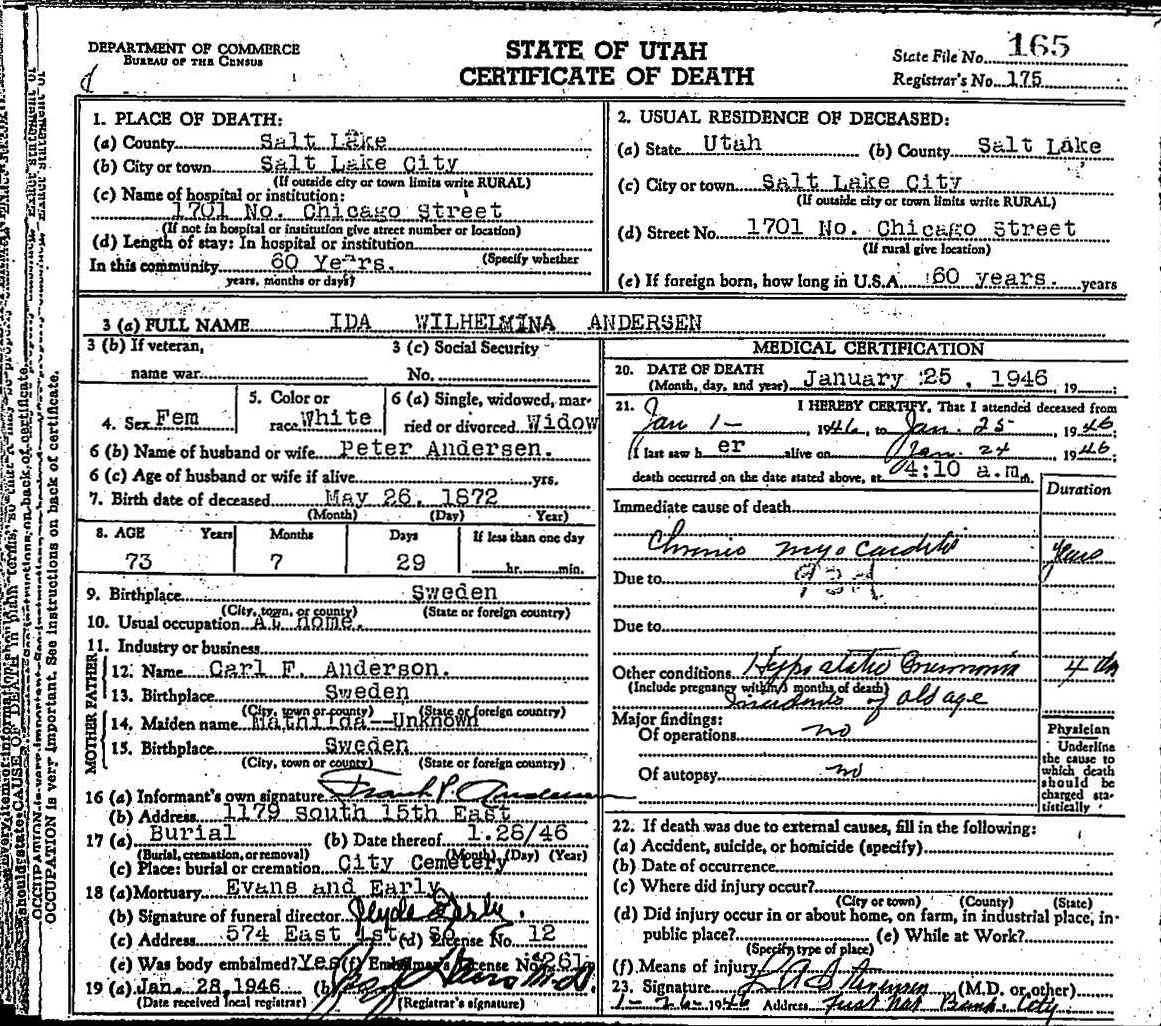 DEPARTMENT OF COMMERCE
BUREAU OF THE CENSUS
STATE OF UTAH
CERTIFICATE OF DEATH
State File No. 165
Registrar's No. 175
1. PLACE OF DEATH:
(a) County Salt Lake
(b) City or town Salt Lake City
(If outside city or town limits write RURAL)
(c) Name of hospital or institution:
1701 No. Chicago Street
(If not in hospital or institution give street number or location)
(d) Length of stay: In hospital or institution
(Specify whether
In this community 60 Years.
years, months or days)
2. USUAL RESIDENCE OF DECEASED:
(a) State Utah (b) County Salt Lake
(c) City or town Salt Lake City
(If outside city or town limits write RURAL)
(d) Street No. 1701 No. Chicago Street
(If rural give location)
(e) If foreign born, how long in U.S.A. 60 years. years
3 (a) FULL NAME IDA WILHELMINA ANDERSEN
3 (b) If veteran,
name war
3 (c) Social Security
No.
4. Sex Fem
5. Color or
race White
6 (a) Single, widowed, mar-
ried or divorced Widow
6 (b) Name of husband or wife Peter Andersen.
6 (c) Age of husband or wife if alive yrs.
7. Birth date of deceased May 26, 1872
(Month) (Day) Year)
8. AGE Years Months Days If less than one day
73 7 29 hr. min.
9. Birthplace Sweden
(City, town, or county) (State or foreign country)
10. Usual occupation At home.
11. Industry or business
FATHER
12. Name Carl F. Anderson.
13. Birthplace Sweden
(City, town or county) (State or foreign country)
MOTHER
14. Maiden name Mathilda--Unknown
15. Birthplace Sweden
(City, town or county) (State or foreign country)
16 (a) Informant's own signature Frank P. Andersen
(b) Address 1179 South 15th East
17 (a) Burial (b) Date thereof 1.28/46
(Burial, cremation, or removal) (Month) (Day) (Year)
(c) Place: burial or cremation City Cemetery
18 (a) Mortuary Evans and Early
(b) Signature of funeral director Early.
(c) Address 574 East 1st So (d) License No. 12
(e) Was body embalmed? Yes (f) Embalmer's License No. 261
19 (a) Jan. 28, 1946 (b) M.D.
(Date received local registrar) (Registrar's signature)
MEDICAL CERTIFICATION
20. DATE OF DEATH
(Month, day, and year) January 25, 1946, 19
21. I HEREBY CERTIFY, That I attended deceased from
Jan 1- , 1946, to Jan. 25 , 1946
I last saw h er alive on Jan. 24 , 1946
death occurred on the date stated above, at 4:10 a.m. m.
Duration
Immediate cause of death
Chronic myocarditis years
Due to 93d
Due to
Other conditions Hypostatic Pneumonia 4 da
(Include pregnancy within 3 months of death)
Incidents of old age
Major findings:
Of operations no
Of autopsy no
Physician
Underline
the cause to
which death
should be
charged sta-
tistically
22. If death was due to external causes, fill in the following:
(a) Accident, suicide, or homicide (specify)
(b) Date of occurrence
(c) Where did injury occur?
(City or town) (County) (State)
(d) Did injury occur in or about home, on farm, in industrial place, in-
public place? (e) While at Work?
(Specify type of place)
(f) Means of injury
23. Signature (M.D. or other)
1-26-1946 Address First Nat. Bank. City
OCCUPATION is very important. See instructions on back of certificate.